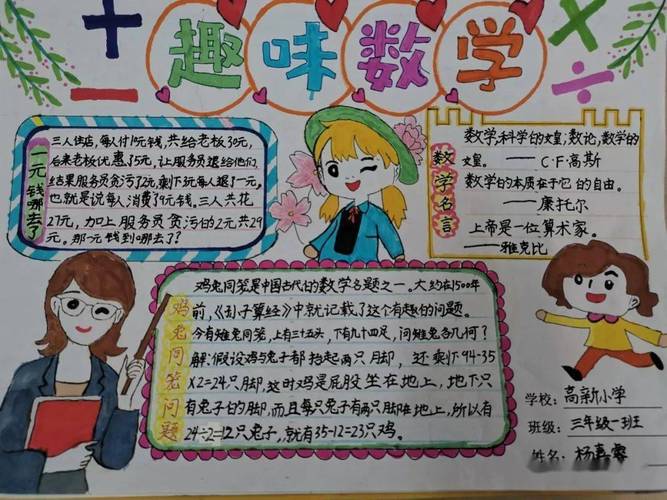 + 趣味数学 ×
− ÷
一元钱哪去了
三人住店,每人付10元钱,共给老板30元,
后来老板优惠了5元,让服务员退给他们,
结果服务员贪污了2元,剩下3元每人退了一元。
也就是说每人消费了9元钱。三人共花
27元,加上服务员贪污的2元共29
元。那一元钱到哪去了?
数学名言
数学,科学的女皇;数论,数学的
女皇。——C·F·高斯
数学的本质在于它的自由。
——康托尔
上帝是一位算术家。
——雅克比
鸡兔同笼问题
鸡兔同笼是中国古代的数学名题之一。大约在1500年
前,《孙子算经》中就记载了这个有趣的问题。
今有雉兔同笼,上有三十五头,下有九十四足,问雉兔各几何?
解:假设鸡与兔子都抬起两只脚,还剩下94-35
×2=24只脚,这时鸡是屁股坐在地上,地下只
有兔子的脚,而且每只兔子有两只脚在地上,所以有
24÷2=12只兔子,就有35-12=23只鸡。
学校:高新小学
班级:三年级一班
姓名:杨